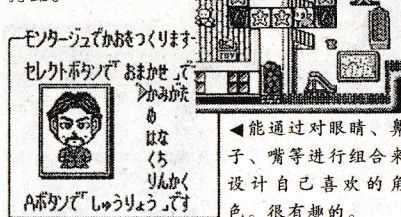 モンタージュでかおをつくります
セレクトボタンで おまかせ です
▷かみがた
め
はな
くち
りんかく
Aボタンで しゅうりょう です
TOY
◀能通过对眼睛、鼻
子、嘴等进行组合来
设计自己喜欢的角
色。很有趣的。